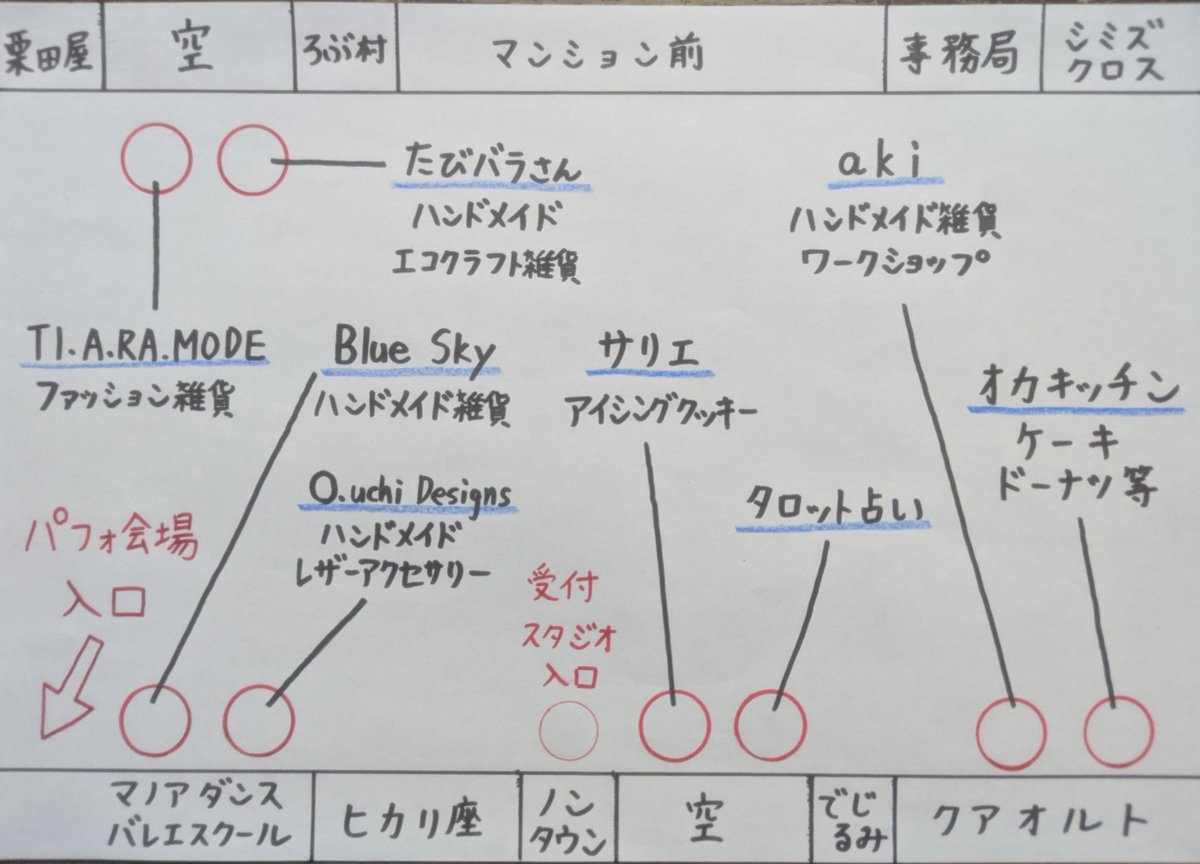 栗田屋
空
ろぶ村
マンション前
事務局
シミズ
クロス
たびバラさん
ハンドメイド
エコクラフト雑貨
aki
ハンドメイド雑貨
ワークショップ
TI.A.RA.MODE
ファッション雑貨
Blue Sky
ハンドメイド雑貨
サリエ
アイシングクッキー
オカキッチン
ケーキ
ドーナツ等
O.uchi Designs
ハンドメイド
レザーアクセサリー
タロット占い
パフォ会場
入口
受付
スタジオ
入口
マノアダンス
バレエスクール
ヒカリ座
ノン
タウン
空
でじ
るみ
クアオルト